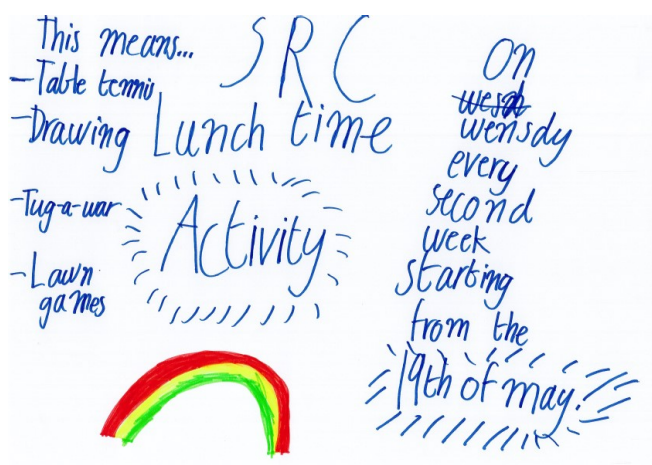 This means...
- Table tennis
- Drawing
- Tug-a-war
- Lawn
games
SRC
Lunch time
Activity
On
wensdy
every
second
week
starting
from the
19th of may.